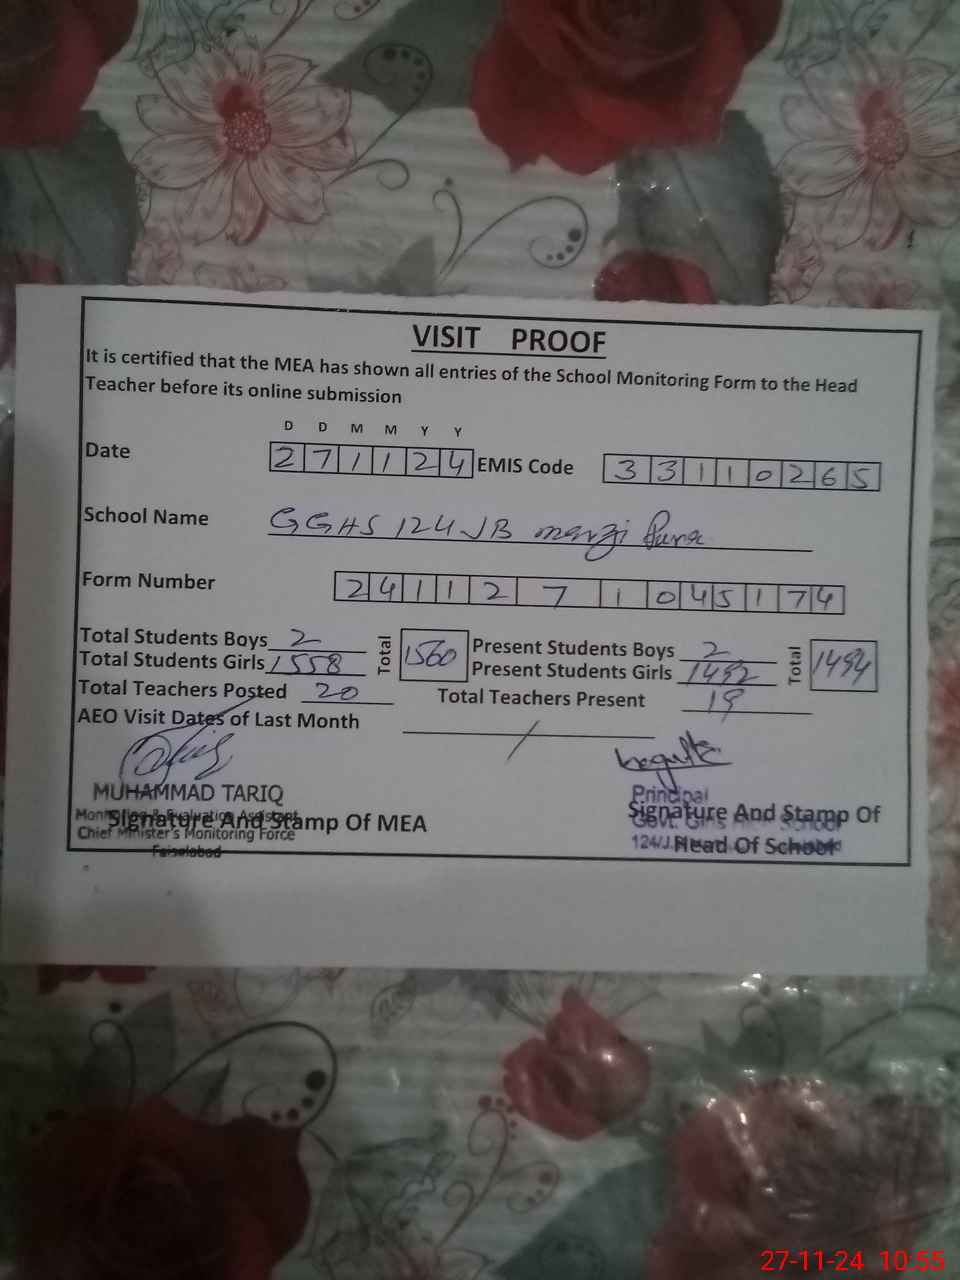 VISIT PROOF
It is certified that the MEA has shown all entries of the School Monitoring Form to the Head
Teacher before its online submission
D D M M Y Y
Date 271124 EMIS Code 33110265
School Name GGHS 124 JB marzi Pura
Form Number 2411271045174
Total Students Boys 2 Total 1560 Present Students Boys 2 Total 1494
Total Students Girls 1558 Present Students Girls 1492
Total Teachers Posted 20 Total Teachers Present 19
AEO Visit Dates of Last Month /
MUHAMMAD TARIQ
Monitoring & Evaluation Assistant
Chief Minister's Monitoring Force
Faisalabad
Signature And Stamp Of MEA
Principal
Govt. Girls High School
124/J.B
Signature And Stamp Of
Head Of School
27-11-24 10:55